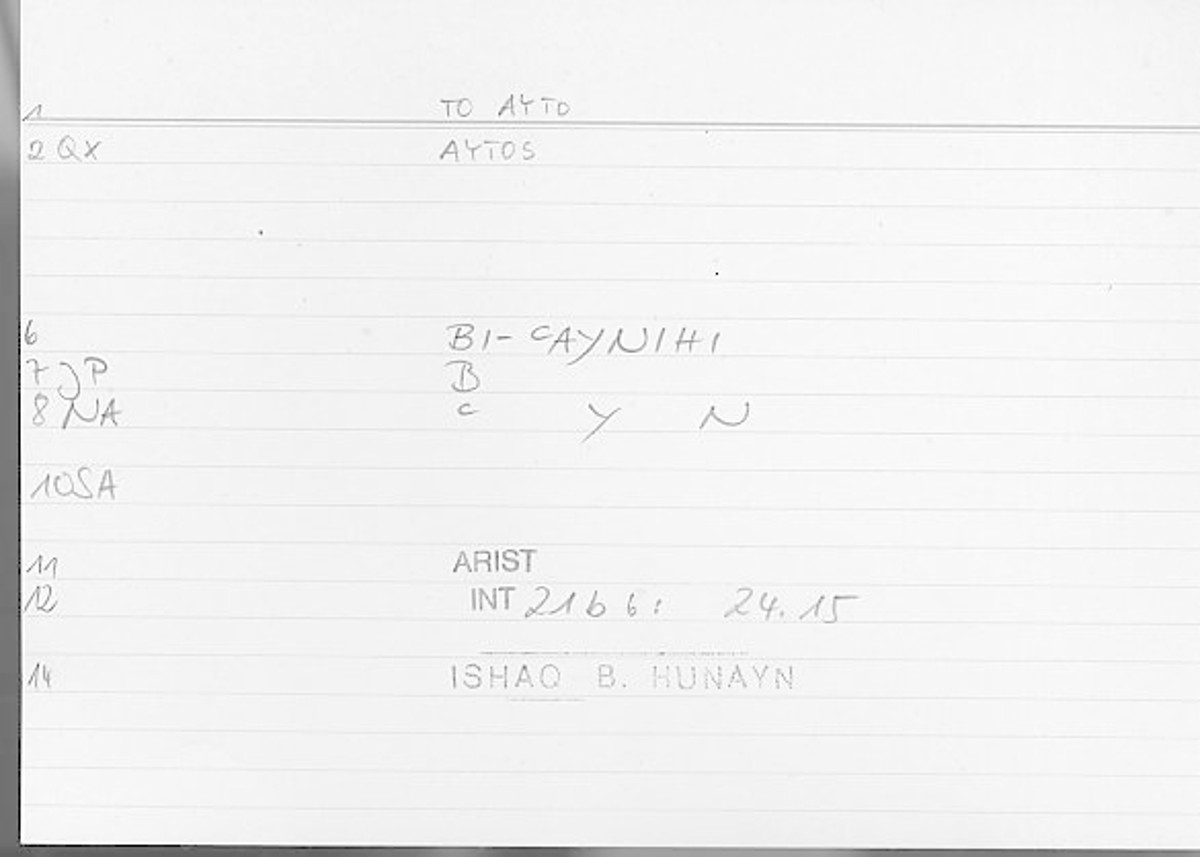 1 TO AYTO
2 QX AYTOS
6 BI-CAYNIHI
7 JP B
8 NA C Y N
10SA
11 ARIST
12 INT 21b 6: 24.15
14 ISHAQ B. HUNAYN